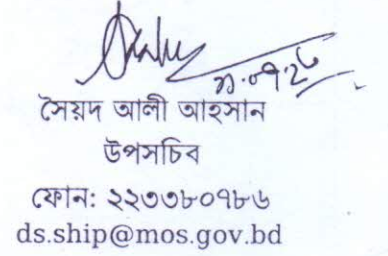 সৈয়দ আলী আহসান
উপসচিব
ফোন: ২২৩৩৮০৭৮৬
ds.ship@mos.gov.bd